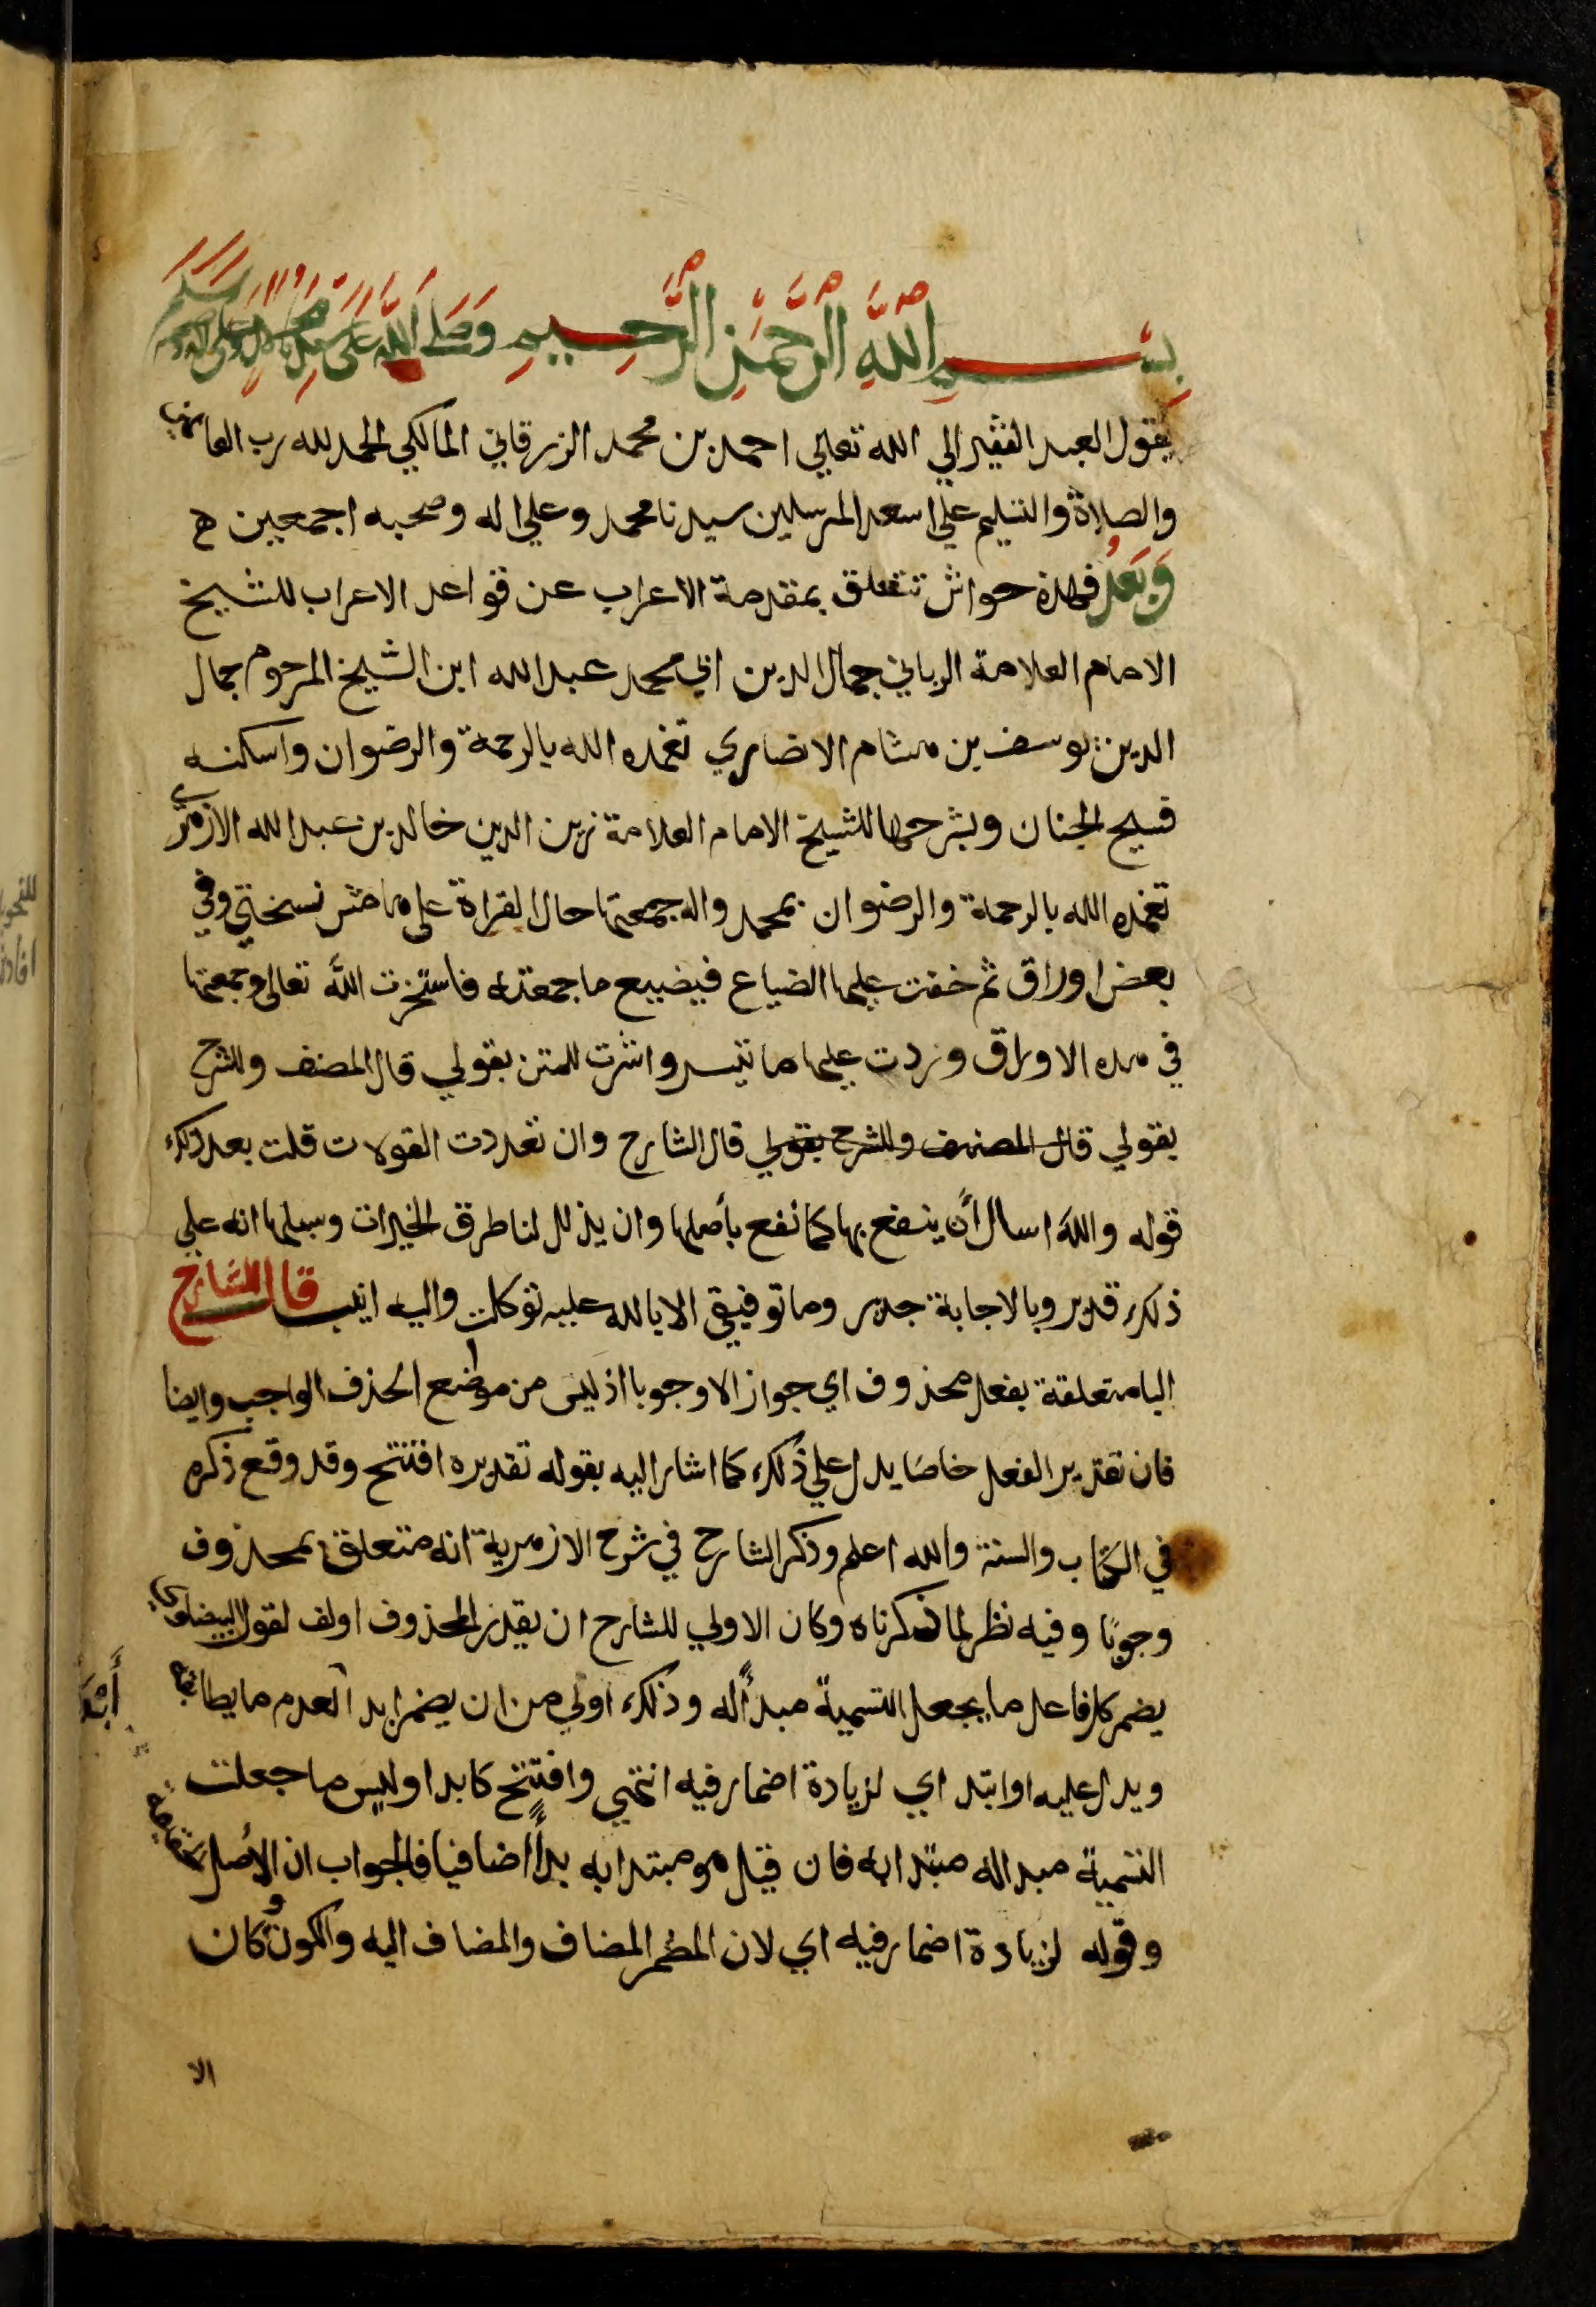 بِسْمِ اللَّهِ الرَّحْمَنِ الرَّحِيمِ وَصَلَّى اللَّهُ عَلَى سيدنا محمد وعلى اله وصحبه وسلم
يقول العبد الفقير الي الله تعالي احمد بن محمد الزرقاني المالكي الحمد لله رب العالمين
والصلاة والتسليم علي اسعد المرسلين سيدنا محمد وعلي اله وصحبه اجمعين ه
وَبَعْدُ فهذه حواش تتعلق بمقدمة الاعراب عن قواعد الاعراب للشيخ
الامام العلامة الرباني جمال الدين ابي محمد عبد الله ابن الشيخ المرحوم جمال
الدين يوسف بن هشام الانصاري تغمده الله بالرحمة والرضوان واسكنه
فسيح الجنان وبشرحها للشيخ الامام العلامة زين الدين خالد بن عبد الله الازهري
تغمده الله بالرحمة والرضوان بمحمد واله جمعتها حال القراة علي هامش نسختي وفي
بعض اوراق ثم خفت عليها الضياع فيضيع ما جمعته فاستخرت اللَّه تعالى وجمعتها
في هذه الاوراق وزدت عليها ما تيسر واشرت للمتن بقولي قال المصنف وللشرح
بقولي قال المصنف وللشرح بقولي قال الشارح وان تعددت القولات قلت بعد ذلك
قوله واللَّه اسال أن ينفع بها كما نفع بأصلها وان يذلل لنا طرق الخيرات وسبلها انه علي
ذلك قدير وبالاجابة جدير وما توفيقي الا بالله عليه توكلت واليه انيب قال الشارح
البا متعلقة بفعل محذوف اي جوازا لا وجوبا اذ ليس من مواضع الحذف الواجب وايضا
فان تقدير الفعل خاصا يدل علي ذلك كما اشار اليه بقوله تقديره افتتح وقد وقع ذكره
في الكتاب والسنة والله اعلم وذكر الشارح في شرح الازهرية انه متعلق بمحذوف
وجوبًا وفيه نظر لما ذكرناه وكان الاولي للشارح ان يقدر المحذوف اولف لقول البيضاوي
يضمر كل فاعل ما يجعل التسمية مبدأً له وذلك اولي من ان يضمر ابدا لعدم ما يطابقه
ويدل عليه او ابتداي لزيادة اضمار فيه انتهي وافتتح كابدا وليس ما جعلت
التسمية مبدا له مبتدا به فان قيل هو مبتدا به بدأً اضافيا فالجواب ان الأصل حقيقة
وقوله لزيادة اضمار فيه اي لان المضمر المضاف والمضاف اليه والكون وكان
الا